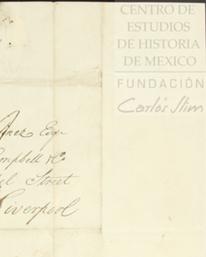 CENTRO DE
ESTUDIOS
DE HISTORIA
DE MEXICO
FUNDACIÓN
Carlos Slim
Esqr
mpbell & Co
Street
Liverpool